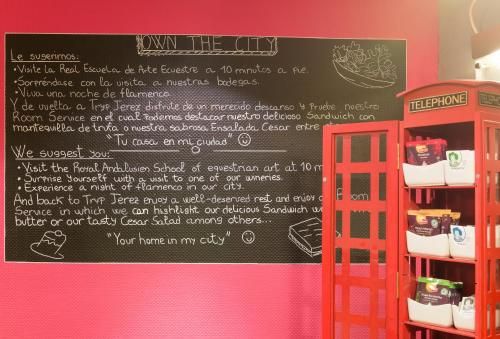 OWN THE CITY
Le sugerimos:
•Visite la Real Escuela de Arte Ecuestre a 10 minutos a pie.
•Sorpréndase con la visita a nuestras bodegas.
•Viva una noche de flamenco.
Y de vuelta a Tryp Jerez disfrute de un merecido descanso y pruebe nuestro
Room Service en el cual podemos destacar nuestro delicioso Sandwich con
mantequilla de trufa o nuestra sabrosa Ensalada Cesar entre
"Tu casa en mi ciudad" ☺
We suggest you:
• Visit the Royal Andalusien School of equestrian art at 10 m
• Surprise yourself with a visit to one of our wineries.
• Experience a night of flamenco in our city.
And back to Tryp Jerez enjoy a well-deserved rest and enjoy Room
Service in which we can highlight our delicious Sandwich w
butter or our tasty Cesar Salad among others...
"Your home in my city" ☺
TELEPHONE